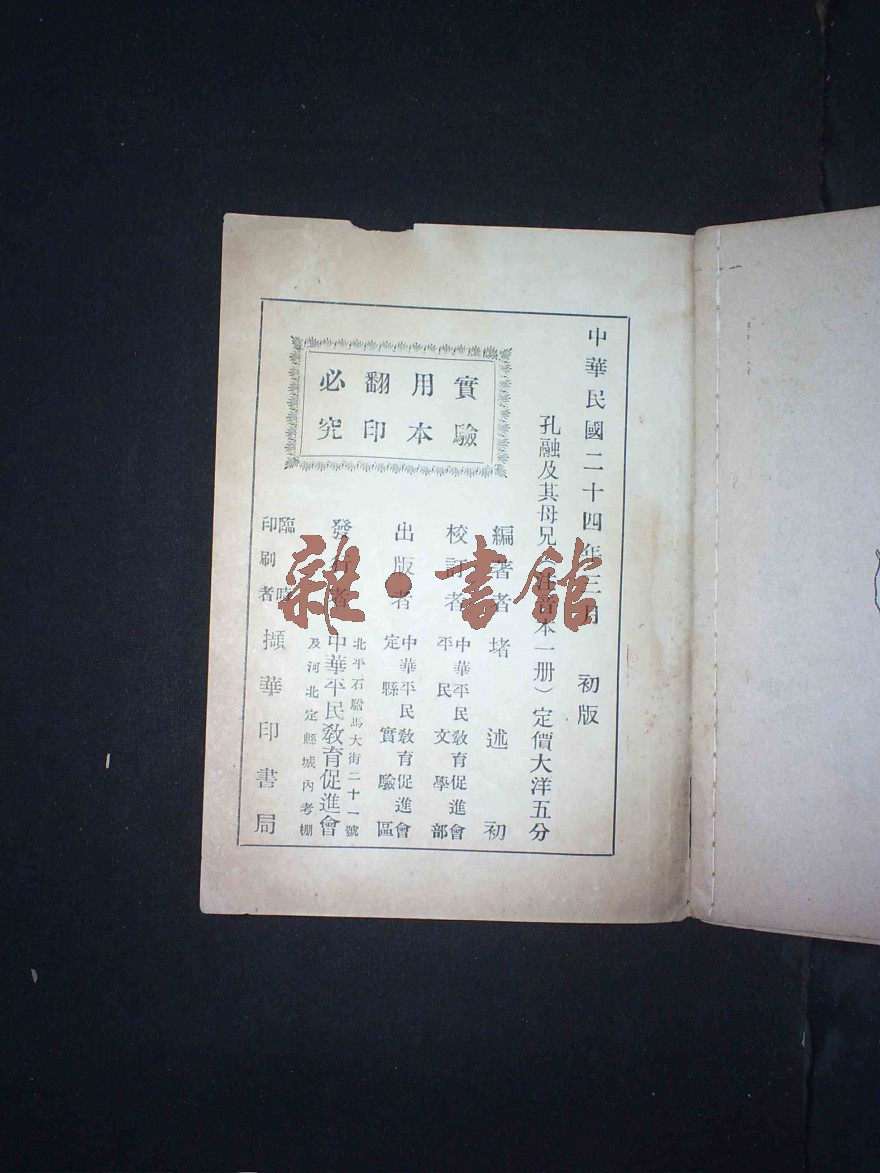 中華民國二十四年三月　初版
孔融及其母兄（注音本一册）定價大洋五分
實驗
用本
翻印
必究
編著者　堵述初
校訂者　中華平民教育促進會
平民文學部
出版者　中華平民教育促進會
定縣實驗區
北平石駙馬大街二十一號
發行者　中華平民教育促進會
及河北定縣城內考棚
印刷者　擷華印書局
雜·書館